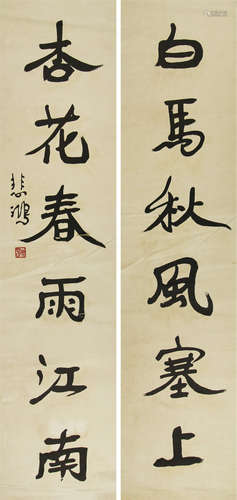 白馬秋風塞上
杏花春雨江南
悲鴻